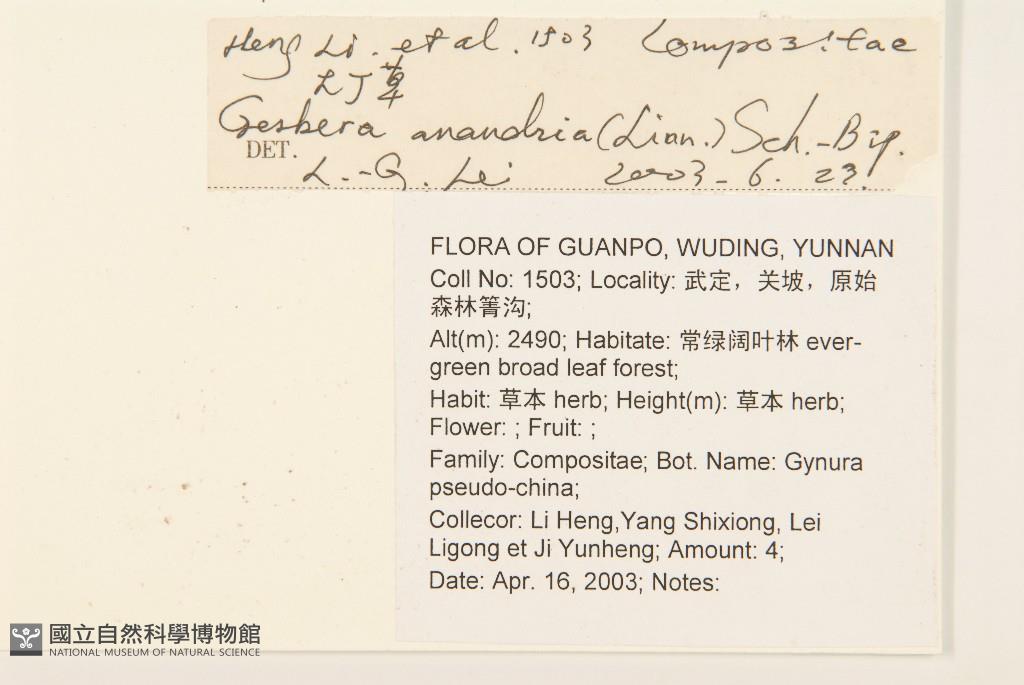 Heng Li. et al. 1503 Compositae
大丁草
Gerbera anandria (Linn.) Sch.-Bip.
DET.
L.-G. Lei 2003-6.23!
FLORA OF GUANPO, WUDING, YUNNAN
Coll No: 1503; Locality: 武定，关坡，原始
森林箐沟;
Alt(m): 2490; Habitate: 常绿阔叶林 ever-
green broad leaf forest;
Habit: 草本 herb; Height(m): 草本 herb;
Flower: ; Fruit: ;
Family: Compositae; Bot. Name: Gynura
pseudo-china;
Collecor: Li Heng,Yang Shixiong, Lei
Ligong et Ji Yunheng; Amount: 4;
Date: Apr. 16, 2003; Notes:
國立自然科學博物館
NATIONAL MUSEUM OF NATURAL SCIENCE